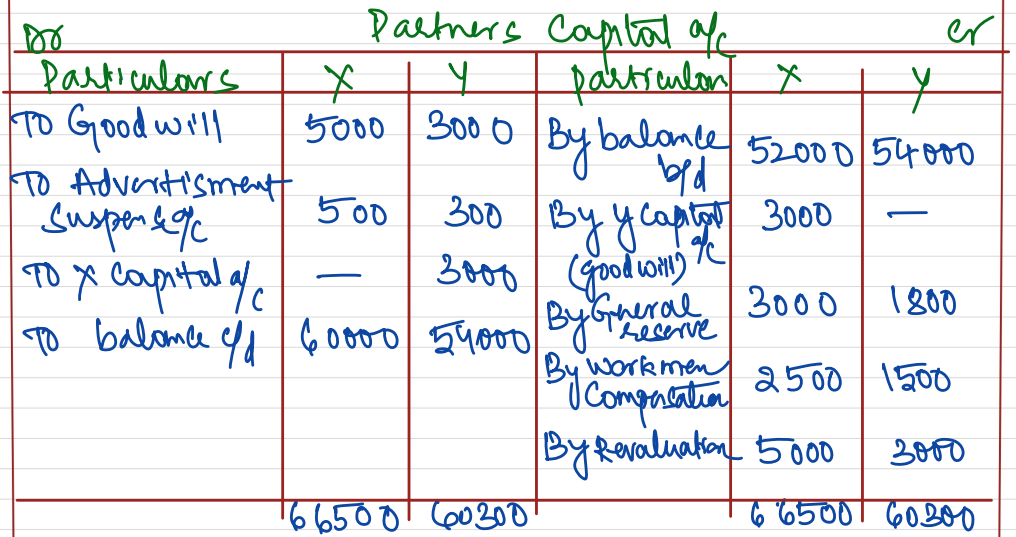 Dr Partners Capital a/c Cr
Particulars X Y Particular X Y
To Goodwill 5000 3000 By balance b/d 52000 54000
To Advertisment Suspense a/c 500 300 By Y Capital a/c (goodwill) 3000 —
To X Capital a/c — 3000 By General reserve 3000 1800
To balance c/d 60000 54000 By Workmen Compensation 2500 1500
By Revaluation 5000 3000
66500 60300 66500 60300